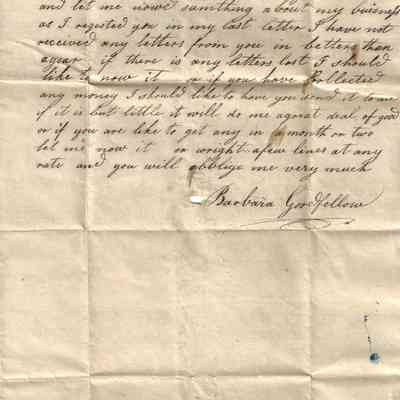 and let me nowe sumthing about my buisness
as I reqested you in my last letter I have not
received any letters from you in better than
a year if there is any letters lost I should
like to now it or if you have Collected
any money I should like to have you send it to me
if it is but little it will do me agreat deal of good
or if you are like to get any in a month or two
let me now it or wright afew lines at any
rate and you will obblige me very much
Barbara Goodfellow